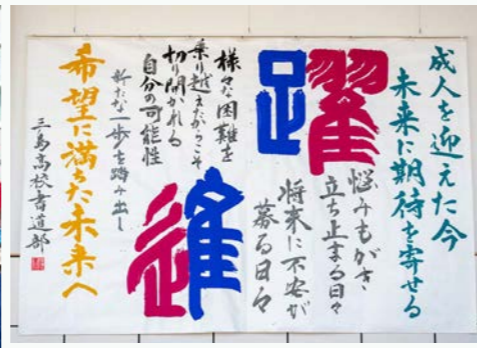 成人を迎えた今
未来に期待を寄せる
悩みもがき
立ち止まる日々
将来に不安が
募る日々
躍進
様々な困難を
乗り越えたからこそ
切り開かれる
自分の可能性
新たな一歩を踏み出し
希望に満ちた未来へ
三島高校書道部